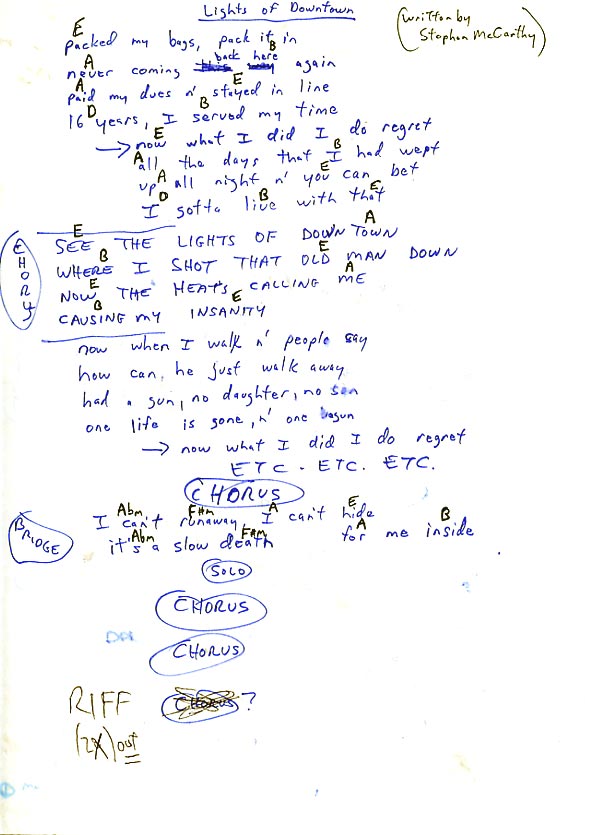 Lights of Downtown
(written by
Stephen McCarthy)
E B
packed my bags, pack it in
back here
A
never coming again
A E
paid my dues n' stayed in line
D B
16 years, I served my time
E
→ now what I did I do regret
A B
all the days that I had wept
A E
up all night n' you can bet
D B E
I gotta live with that
CHORUS
E A
SEE THE LIGHTS OF DOWNTOWN
B E
WHERE I SHOT THAT OLD MAN DOWN
E A
NOW THE HEAT'S CALLING ME
B E
CAUSING MY INSANITY
now when I walk n' people say
how can he just walk away
had a gun, no daughter, no son
one life is gone, n' one begun
→ now what I did I do regret
ETC. ETC. ETC.
CHORUS
BRIDGE
Abm F#m A E B
I can't runaway I can't hide
Abm F#m A
it's a slow death for me inside
SOLO
CHORUS
CHORUS
RIFF CHORUS ?
(2X) out